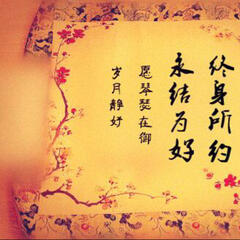 终身所约
永结为好
愿琴瑟在御
岁月静好